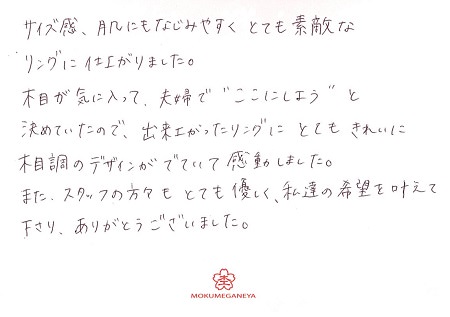 サイズ感、肌にもなじみやすく とても素敵な
リングに仕上がりました。
木目が気に入って、夫婦で"ここにしよう"と
決めていたので、出来上がったリングに とても きれいに
木目調のデザインがでていて 感動しました。
また、スタッフの方々も とても優しく、私達の希望を叶えて
下さり、ありがとうございました。
MOKUMEGANEYA